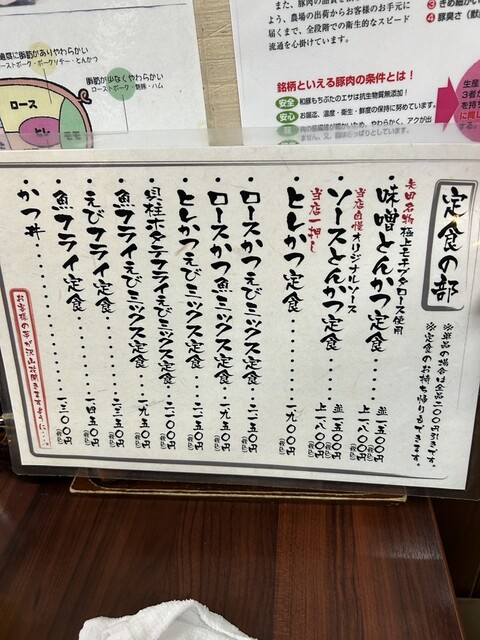 定食の部
※単品の場合は全品二〇〇円引きです。
※定食のお持ち帰りもできます。
矢田名物 極上モチブタロース使用
・味噌とんかつ定食……並一五〇〇円(税込)
上一八〇〇円(税込)
当店自慢オリジナルソース
・ソースとんかつ定食……並一五〇〇円(税込)
上一八〇〇円(税込)
当店一押し
・ヒレかつ定食……一九〇〇円(税込)
・ロースかつえびミックス定食……二一〇〇円(税込)
・ロースかつ魚ミックス定食……一九五〇円(税込)
・ヒレかつえびミックス定食……二二〇〇円(税込)
・貝柱ホタテフライえびミックス定食……一九五〇円(税込)
・魚フライえびミックス定食……二一〇〇円(税込)
・えびフライ定食……二三五〇円(税込)
・魚フライ定食……一四五〇円(税込)
・かつ丼……一三〇〇円(税込)
お客様の幸が沢山お開きますように…
適度に脂肪がありやわらかい
ローストポーク・ポークソテー・とんかつ
脂肪が少なくやわらかい
ローストポーク・焼豚・ハム
ロース
ヒレ
モモ
よう、農場の出荷からお客様のお手元に
届くまで、全段階での衛生的なスピード
流通を心掛けています。
銘柄といえる豚肉の条件とは!
安全 和豚もちぶたのエサは抗生物質無添加!
安心 お届迄、温度・衛生・鮮度の保持に努めています。
③ きめ細かい
④ 豚臭さ
生産
3者が
に同じ